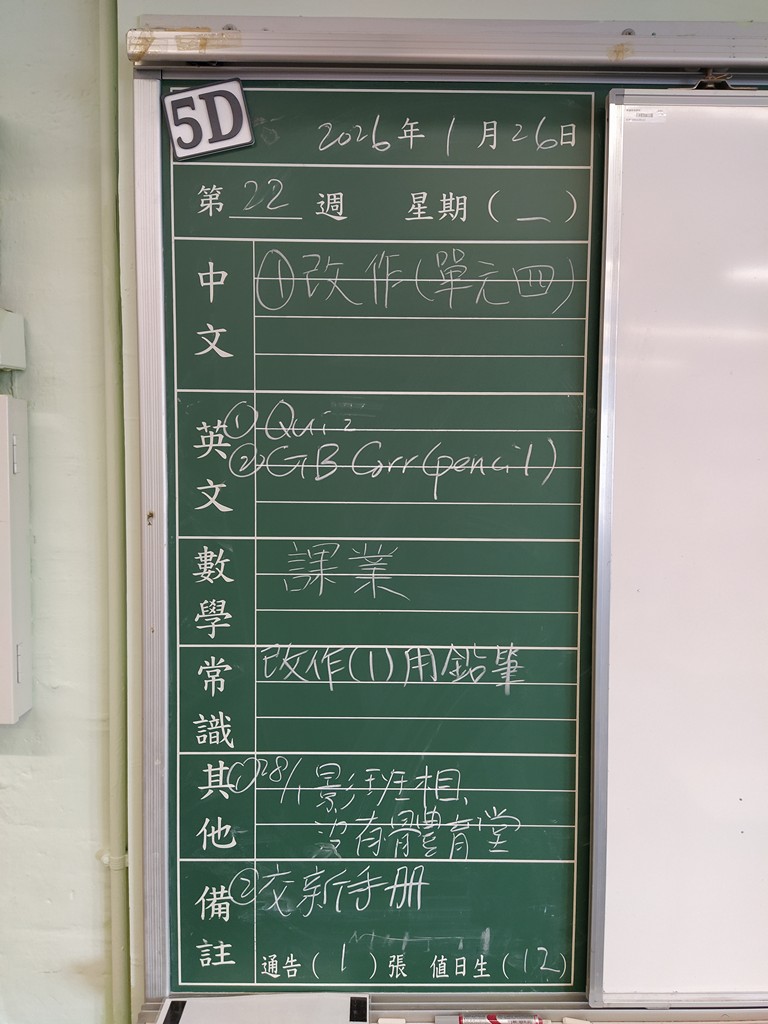 5D
2026年1月26日
第22週 星期(一)
中文
①改作(單元四)
英文
①Quiz
②GB Corr(pencil)
數學
課業
常識
改作(1)用鉛筆
其他
①28/1影班相,
沒有體育堂
備註
②交新手冊
通告(1)張 值日生(12)